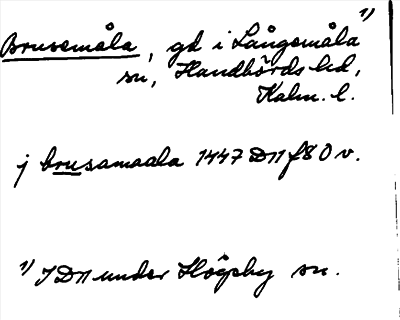 Brusemåla, gd i Långemåla 1)
sn, Handbörds hd,
Kalm. l.
j brusamaala 1447 DN f80 v.
1) I DN under Högsby sn.